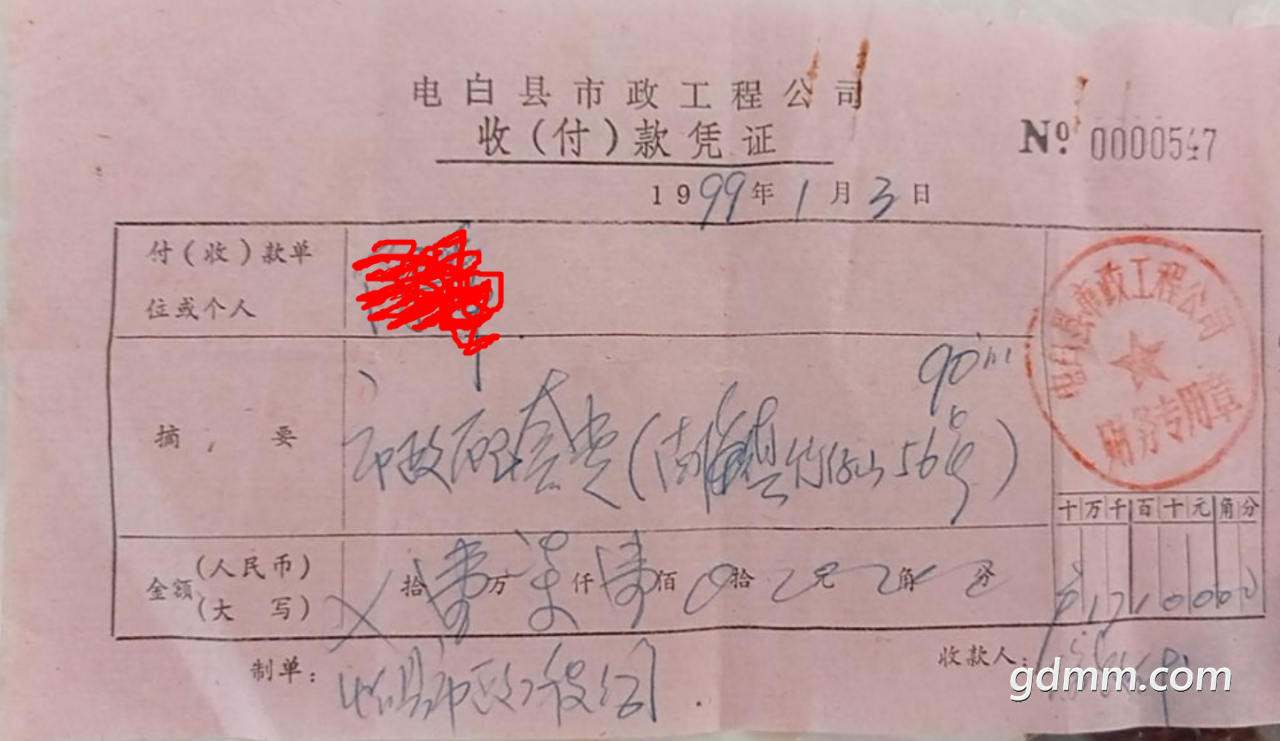 电白县市政工程公司
收(付)款凭证
Nº 0000547
1999年1月3日
付(收)款单
位或个人
电白县市政工程公司
财务专用章
90
摘要
市政配套费(南海镇竹仔山56号)
十万千百十元角分
金额(人民币)(大写)
拾壹万柒仟壹佰0拾元角分
¥1710000
制单:
电白县市政工程公司
收款人:
gdmm.com